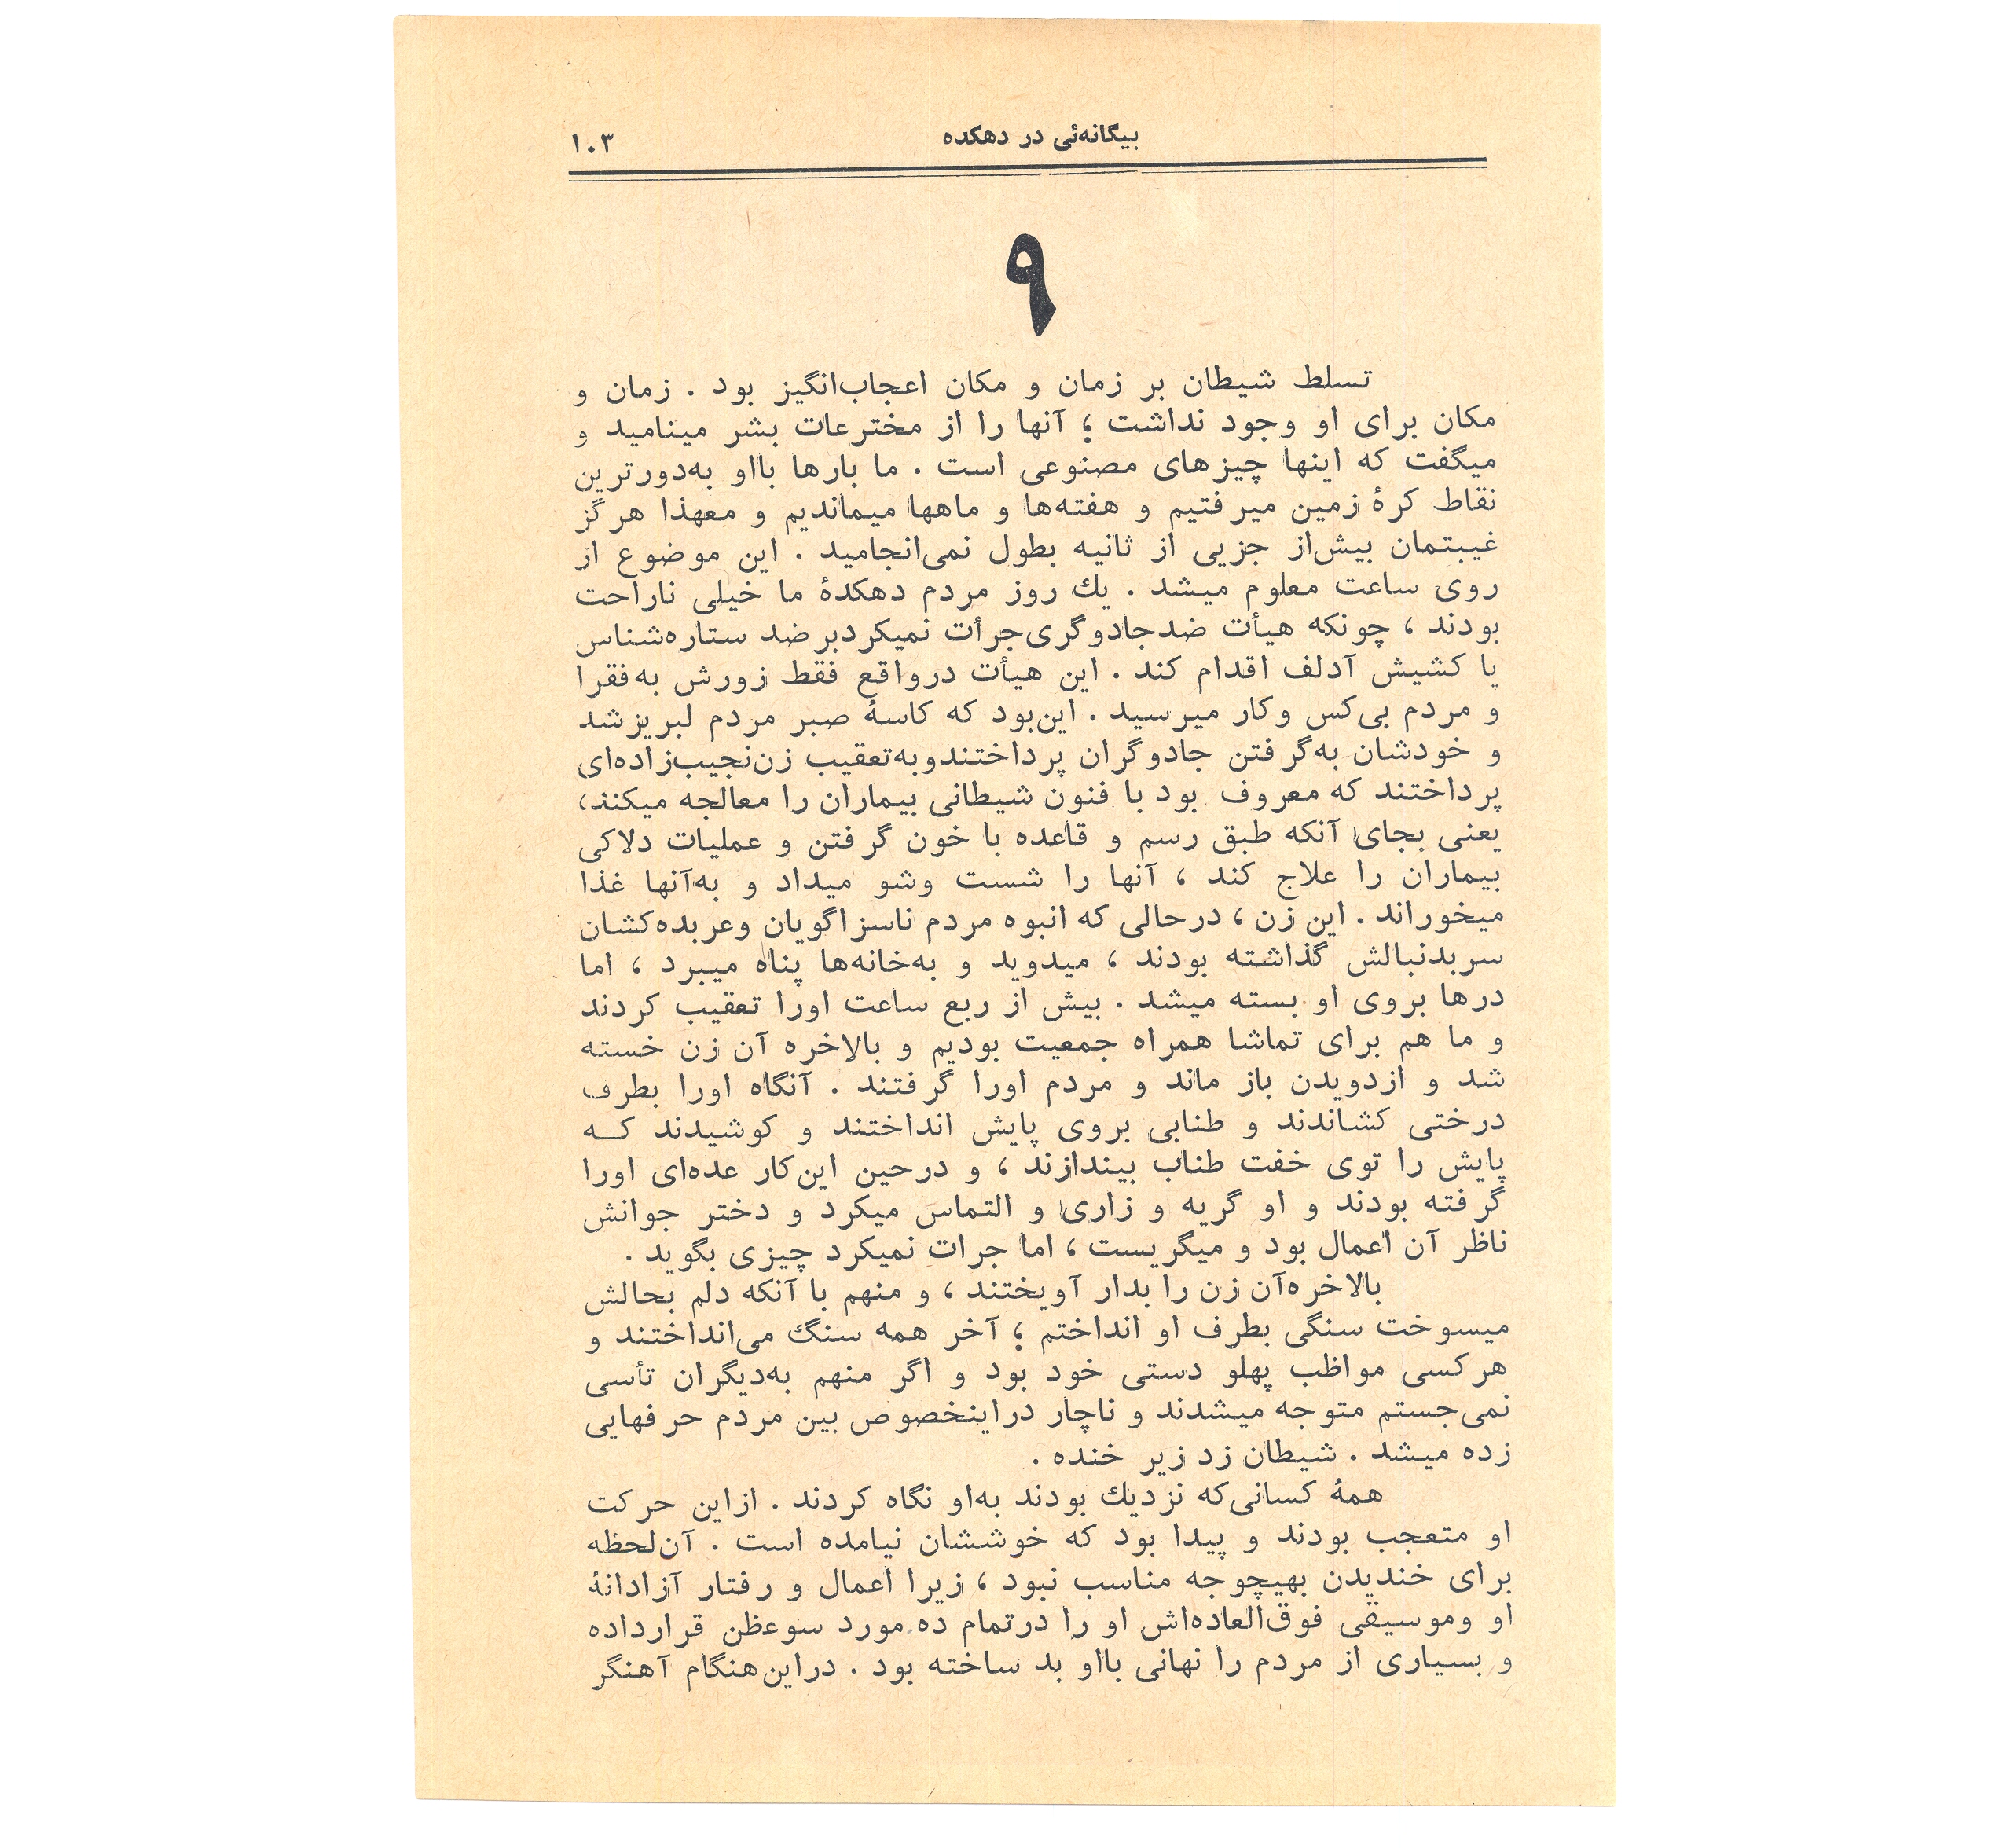 بیگانه‌ئی در دهکده ۱۰۳
۹
تسلط شیطان بر زمان و مکان اعجاب‌انگیز بود . زمان و
مکان برای او وجود نداشت ؛ آنها را از مخترعات بشر مینامید و
میگفت که اینها چیزهای مصنوعی است . ما بارها بااو به‌دورترین
نقاط کرهٔ زمین میرفتیم و هفته‌ها و ماهها میماندیم و معهذا هرگز
غیبتمان بیش‌از جزیی از ثانیه بطول نمی‌انجامید . این موضوع از
روی ساعت معلوم میشد . یك روز مردم دهکدهٔ ما خیلی ناراحت
بودند ، چونکه هیأت ضدجادوگری‌جرأت نمیکردبرضد ستاره‌شناس
یا کشیش آدلف اقدام کند . این هیأت درواقع فقط زورش به‌فقرا
و مردم بی‌کس وکار میرسید . این‌بود که کاسهٔ صبر مردم لبریزشد
و خودشان به‌گرفتن جادوگران پرداختندوبه‌تعقیب زن‌نجیب‌زاده‌ای
پرداختند که معروف بود با فنون شیطانی بیماران را معالجه میکند،
یعنی بجای آنکه طبق رسم و قاعده با خون گرفتن و عملیات دلاکی
بیماران را علاج کند ، آنها را شست وشو میداد و به‌آنها غذا
میخوراند . این زن ، درحالی که انبوه مردم ناسزاگویان وعربده‌کشان
سربدنبالش گذاشته بودند ، میدوید و به‌خانه‌ها پناه میبرد ، اما
درها بروی او بسته میشد . بیش از ربع ساعت اورا تعقیب کردند
و ما هم برای تماشا همراه جمعیت بودیم و بالاخره آن زن خسته
شد و ازدویدن باز ماند و مردم اورا گرفتند . آنگاه اورا بطرف
درختی کشاندند و طنابی بروی پایش انداختند و کوشیدند کـه
پایش را توی خفت طناب بیندازند ، و درحین این‌کار عده‌ای اورا
گرفته بودند و او گریه و زاری و التماس میکرد و دختر جوانش
ناظر آن اعمال بود و میگریست ، اما جرات نمیکرد چیزی بگوید .
بالاخره‌آن زن را بدار آویختند ، و منهم با آنکه دلم بحالش
میسوخت سنگی بطرف او انداختم ؛ آخر همه سنگ می‌انداختند و
هرکسی مواظب پهلو دستی خود بود و اگر منهم به‌دیگران تأسی
نمی‌جستم متوجه میشدند و ناچار دراینخصوص بین مردم حرفهایی
زده میشد . شیطان زد زیر خنده .
همهٔ کسانی‌که نزدیك بودند به‌او نگاه کردند . ازاین حرکت
او متعجب بودند و پیدا بود که خوششان نیامده است . آن‌لحظه
برای خندیدن بهیچوجه مناسب نبود ، زیرا اعمال و رفتار آزادانهٔ
او وموسیقی فوق‌العاده‌اش او را درتمام ده مورد سوءظن قرارداده
و بسیاری از مردم را نهانی بااو بد ساخته بود . دراین‌هنگام آهنگر